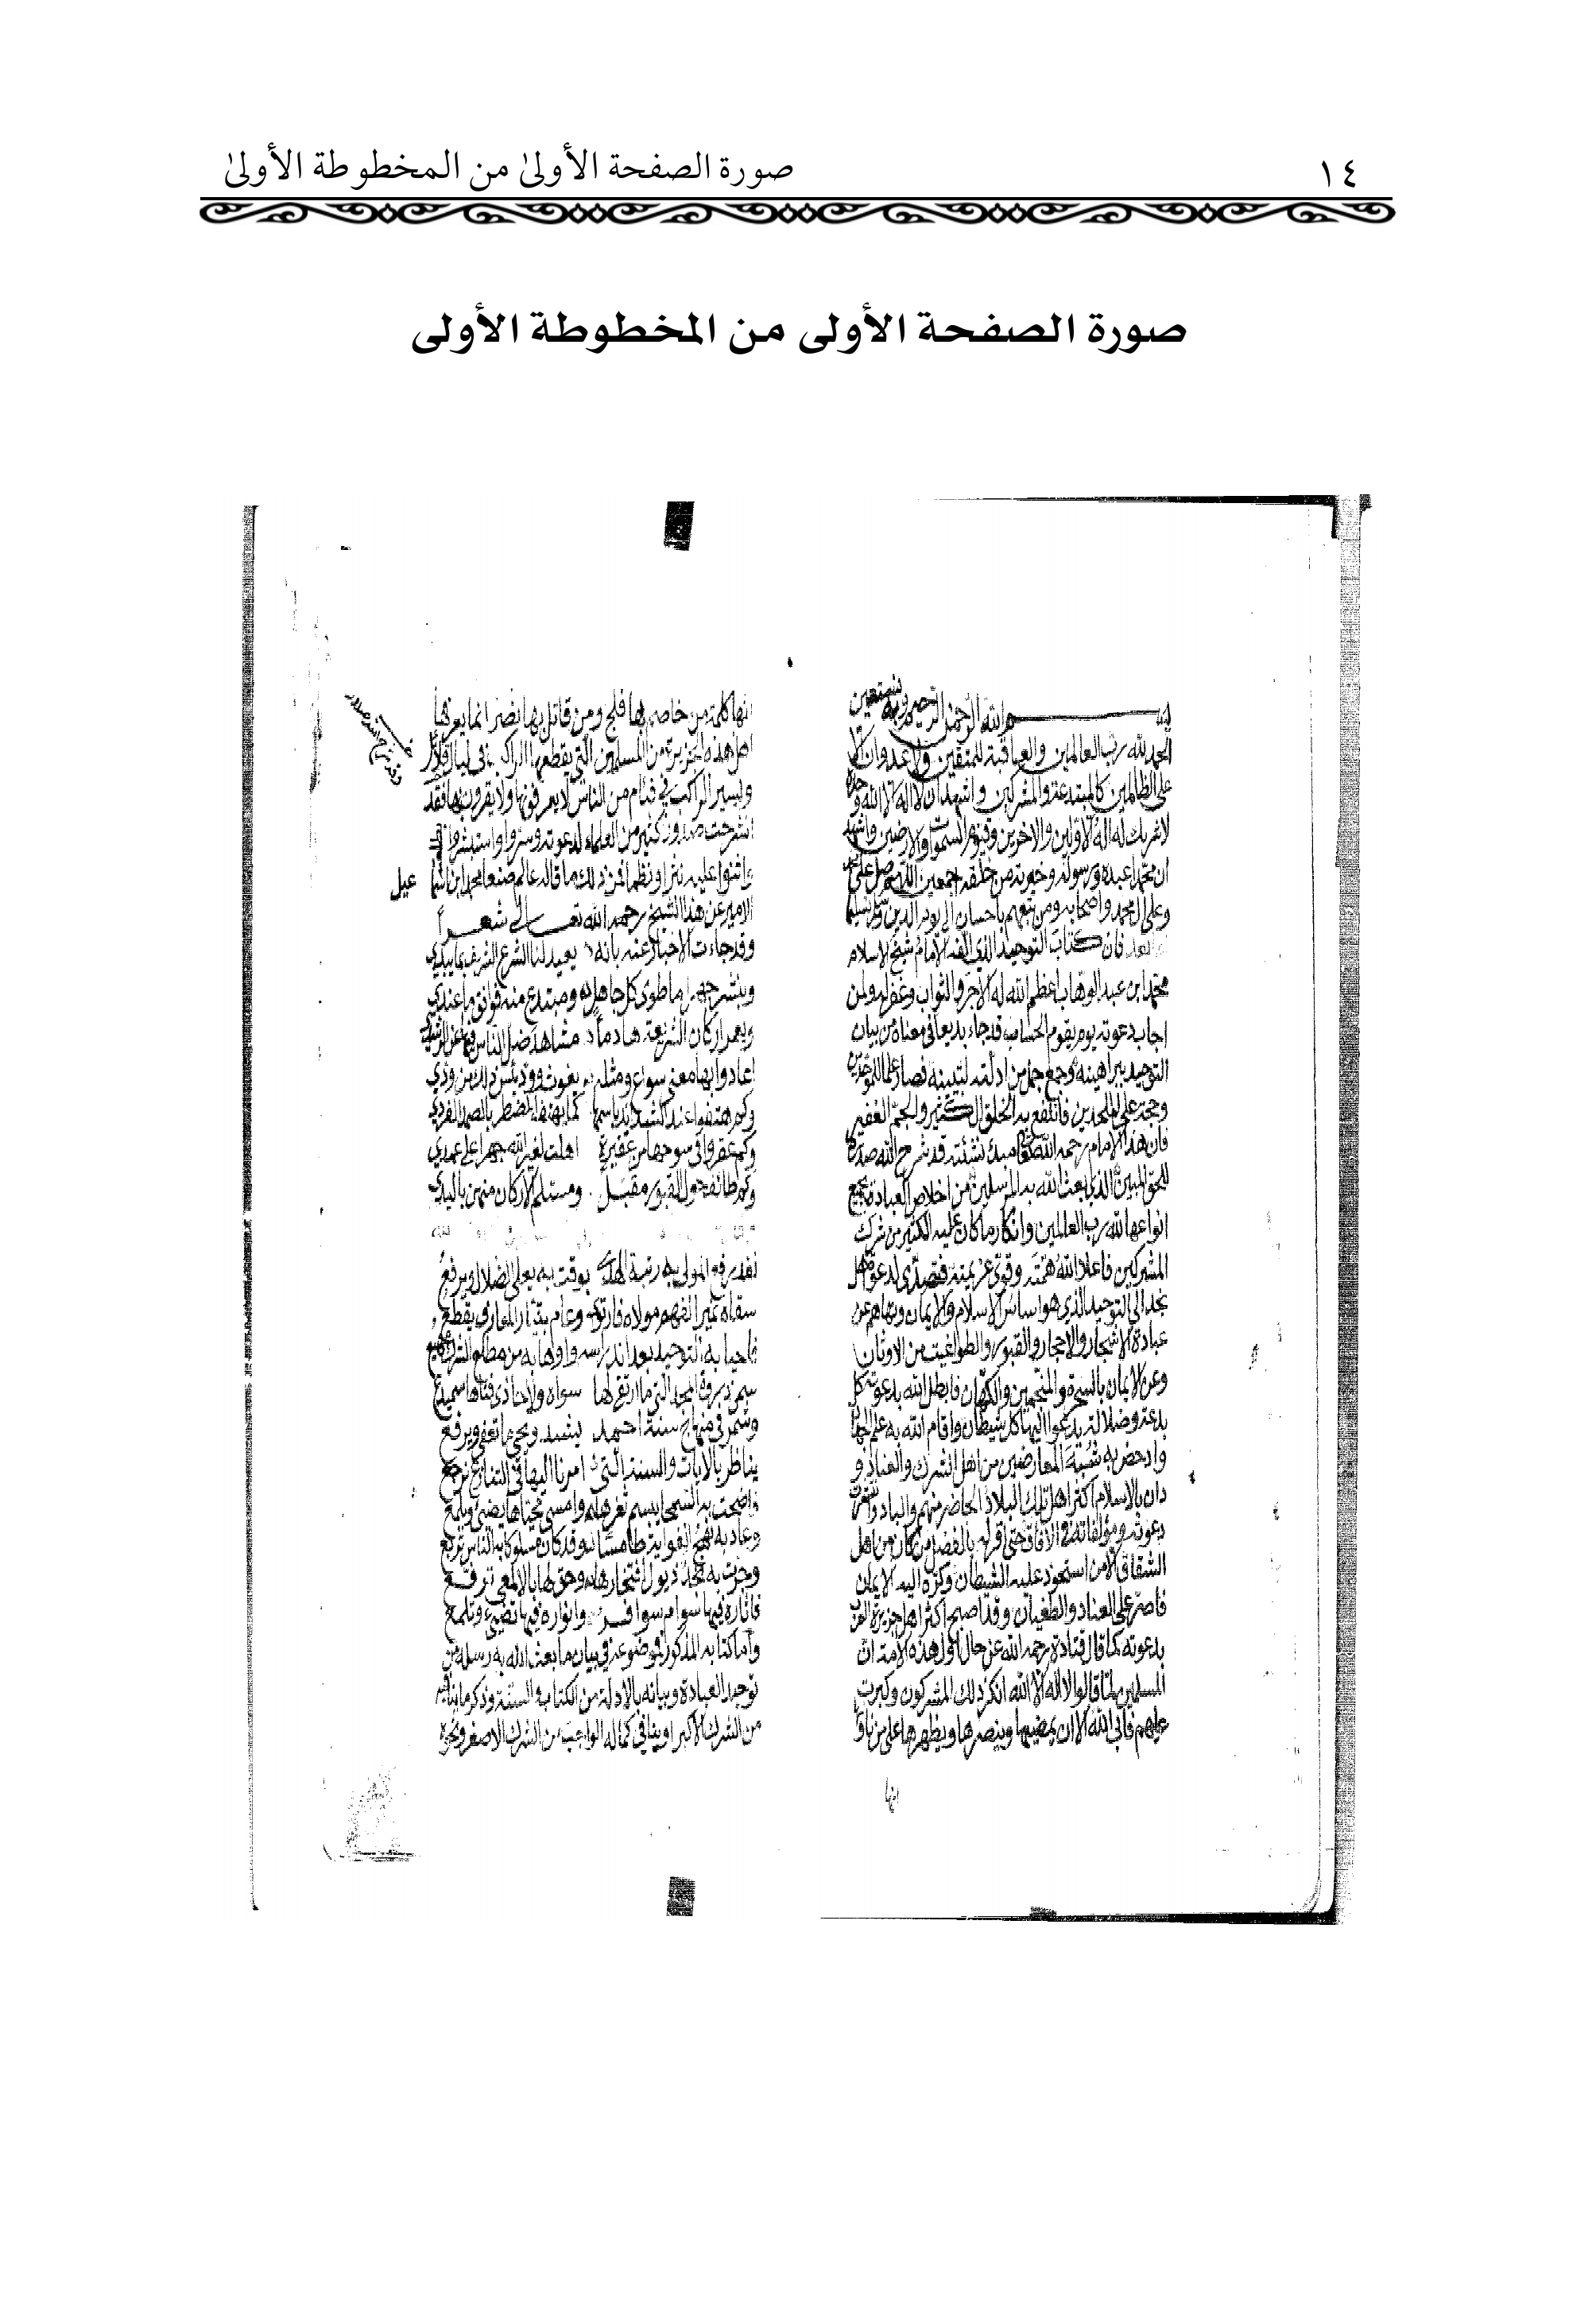 صورة الصفحة الأولىٰ من المخطوطة الأولىٰ
١٤
صورة الصفحة الأولى من المخطوطة الأولى
الله الرحمن الرحيم وبه نستعين
الحمد لله رب العالمين والعاقبة للمتقين ولا عدوان الا
على الظالمين كالمبتدعة والمشركين واشهد ان لا اله الا الله وحده
لا شريك له اله الاولين والاخرين وقيوم السموات والارضين واشهد
ان محمدا عبده ورسوله وخيرته من خلقه اجمعين اللهم صل على محمد
وعلى ال محمد واصحابه ومن تبعهم باحسان الى يوم الدين وسلم تسليما
بعد فان كتاب التوحيد الذي الفه الامام شيخ الاسلام
محمد ابن عبد الوهاب اعظم الله له الاجر والثواب وغفر له ولمن
اجاب دعوته يوم يقوم الحساب قد جاء بديعا في معناه من بيان
التوحيد ببراهينه وجمع جمل من ادلته لتبيينه فصار علما للموحدين
وحجة على الملحدين فانتفع به الخلق الكثير والجم الغفير
فان هذا الامام رحمه الله في مبدأ نشئته قد شرح الله صدره
للحق المبين الذي بعث الله به المرسلين من اخلاص العبادة بجميع
انواعها لله رب العالمين وانكار ما كان عليه الكثير من شرك
المشركين فاعلا الله همته وقوى عزيمته فتصدى لدعوة اهل
نجد الى التوحيد الذي هو اساس الاسلام والايمان ونهاهم عن
عبادة الاشجار والاحجار والقبور والطواغيت من الاوثان
وعن الايمان بالسحرة والمنجمين والكهان فابطل الله بدعوته كل
بدعة وضلالة يدعوا اليها كل شيطان واقام الله به علم الجهاد
وادحض به شبه المعارضين من اهل الشرك والعناد و
دان بالاسلام اكثر اهل تلك البلاد الحاضر منهم والباد وانتشرت
دعوته ومؤلفاته في الافاق حتى اقر له بالفضل من كان من اهل
الشقاق الا من استحوذ عليه الشيطان وكره اليه الايمان
فاصر على العناد والطغيان وقد اصبح اكثر اهل جزيرة العرب
بدعوته كما قال قتادة رحمه الله عن حال اول هذه الامة ان
المسلمين لما قالوا لا اله الا الله انكر ذلك المشركون وكبرت
عليهم فابى الله الا ان يمضيها وينصرها ويظهرها على من ناوأ
انها
انها كلمة من خاصم بها فلج ومن قاتل بها نصر انما يعرفها
اهل هذه الجزيرة من المسلمين التي يقطعها الراكب في ليال قلائل
ويسير الراكب في فئام من الناس لا يعرفونها ولا يقرون بها فقد
انشرحت صدور كثير من العلماء لدعوته وسروا واستبشروا
واثنوا عليه نثرا ونظما فمن ذلك ما قاله عالم صنعا محمد ابن اسما عيل
الامير عن هذا الشيخ رحمه الله تعالى شعرا
وقد جاءت الاخبار عنه بانه يعيد لنا الشرع الشريف بما يبدي
وينشر جهرا ما طوى كل جاهل ومبتدع منه فوافق ما عندي
ويعمر اركان الشريعة هادما مشاهد ضل الناس فيها عن الرشد
اعادوا بها معنى سواع ومثله يغوث وود بئس ذلك من ودي
وكم هتفوا عند الشدائد باسمها كما يهتف المضطر بالصمد الفردي
وكم عقروا في سوحها من عقيرة اهلت لغير الله جهرا على عمدي
وكم طائف حول القبور مقبل ومستلم الاركان منهن باليدي
لقد رفع المولى به رتبة الهدى بوقت به يعلى الضلال ويرفع
سقاه نمير الفهم مولاه فارتوى وعام بتيار المعارف يقطع
فاحيا به التوحيد بعد اندراسه واوهابه من مطلع الشرك مهيع
سمى ذروة المجد التي ما ارتقى لها سواه ولا حاذى فناها سميدع
وشمر في منهاج سنة احمد يشيد ويحيي ما تعفى ويرفع
يناظر بالايات والسنة التي امرنا اليها في التنازع نرجع
فاضحت به السمحا يبسم ثغرها وامسى محياها يضيء ويلمع
وعاد به نهج الغواية طامسا وقد كان مسلوكا به الناس تربع
وجرت به نجد ذيول افتخارها وحق لها بالالمعي ترفع
فاثاره فيها سوام سوافر وانواره فيها تضيء وتلمع
واما كتابه المذكور فموضوعه في بيان ما بعث الله به رسله من
توحيد العبادة وبيانه بالادلة من الكتاب والسنة وذكر ما ينافيه
من الشرك الاكبر او ينافي كماله الواجب من الشرك الاصغر ونحوه